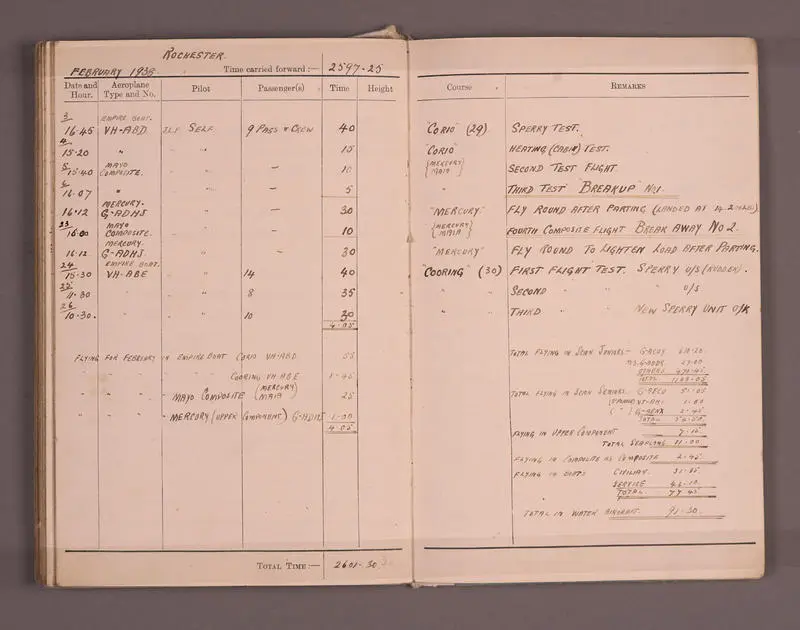 ROCHESTER.
FEBRUARY 1938. Time carried forward:— 2597-25
Date and Hour. Aeroplane Type and No. Pilot Passenger(s) Time Height Course Remarks
3 EMPIRE BOAT.
16.45 VH-ABD SELF 9 PASS & CREW 40 "CORIO" (29) SPERRY TEST.
4
15-20 " " " 15 "CORIO" HEATING (CABIN) TEST.
5 MAYO
15.40 COMPOSITE. " " — 10 {MERCURY MAIA} SECOND TEST FLIGHT.
16.07 " " " — 5 " THIRD TEST "BREAKUP" No1.
MERCURY.
16.12 G-ADHJ " " — 30 "MERCURY" FLY ROUND AFTER PARTING (LANDED AT
23 MAYO
16.00 COMPOSITE. " " — 10 {MERCURY MAIA} FOURTH COMPOSITE FLIGHT BREAK AWAY No 2.
MERCURY.
16.12 G-ADHJ. " " — 30 "MERCURY" FLY ROUND TO LIGHTEN LOAD AFTER PARTING.
24 EMPIRE BOAT.
15-30 VH-ABE " " 14 40 "COORING" (30) FIRST FLIGHT TEST. SPERRY U/S (RUDDER).
25
11.30 " " 8 35 " " SECOND " " " U/S
26
10.30. " " 10 30 " " THIRD " " NEW SPERRY UNIT O/K
4.05
FLYING FOR FEBRUARY IN EMPIRE BOAT CORIO VH-ABD 55
" " " " " " COORING VH-ABE 1-45
" " " " MAYO COMPOSITE (MERCURY MAIA) 25
" " " " MERCURY (UPPER COMPONENT) G-ADHJ 1.00
4.05
TOTAL FLYING IN SCION JUNIORS:—
OTHERS
TOTAL
TOTAL FLYING IN SCION SENIORS:— G-AECU 51.05
TOTAL
FLYING IN UPPER COMPONENT
TOTAL SEAPLANE 11.00
FLYING IN COMPOSITE AS COMPOSITE 2.45
FLYING IN BOATS CIVILIAN.
SERVICE 46.10
TOTAL 77.45
TOTAL IN WATER AIRCRAFT. 91.30.
Total Time:— 2601.30